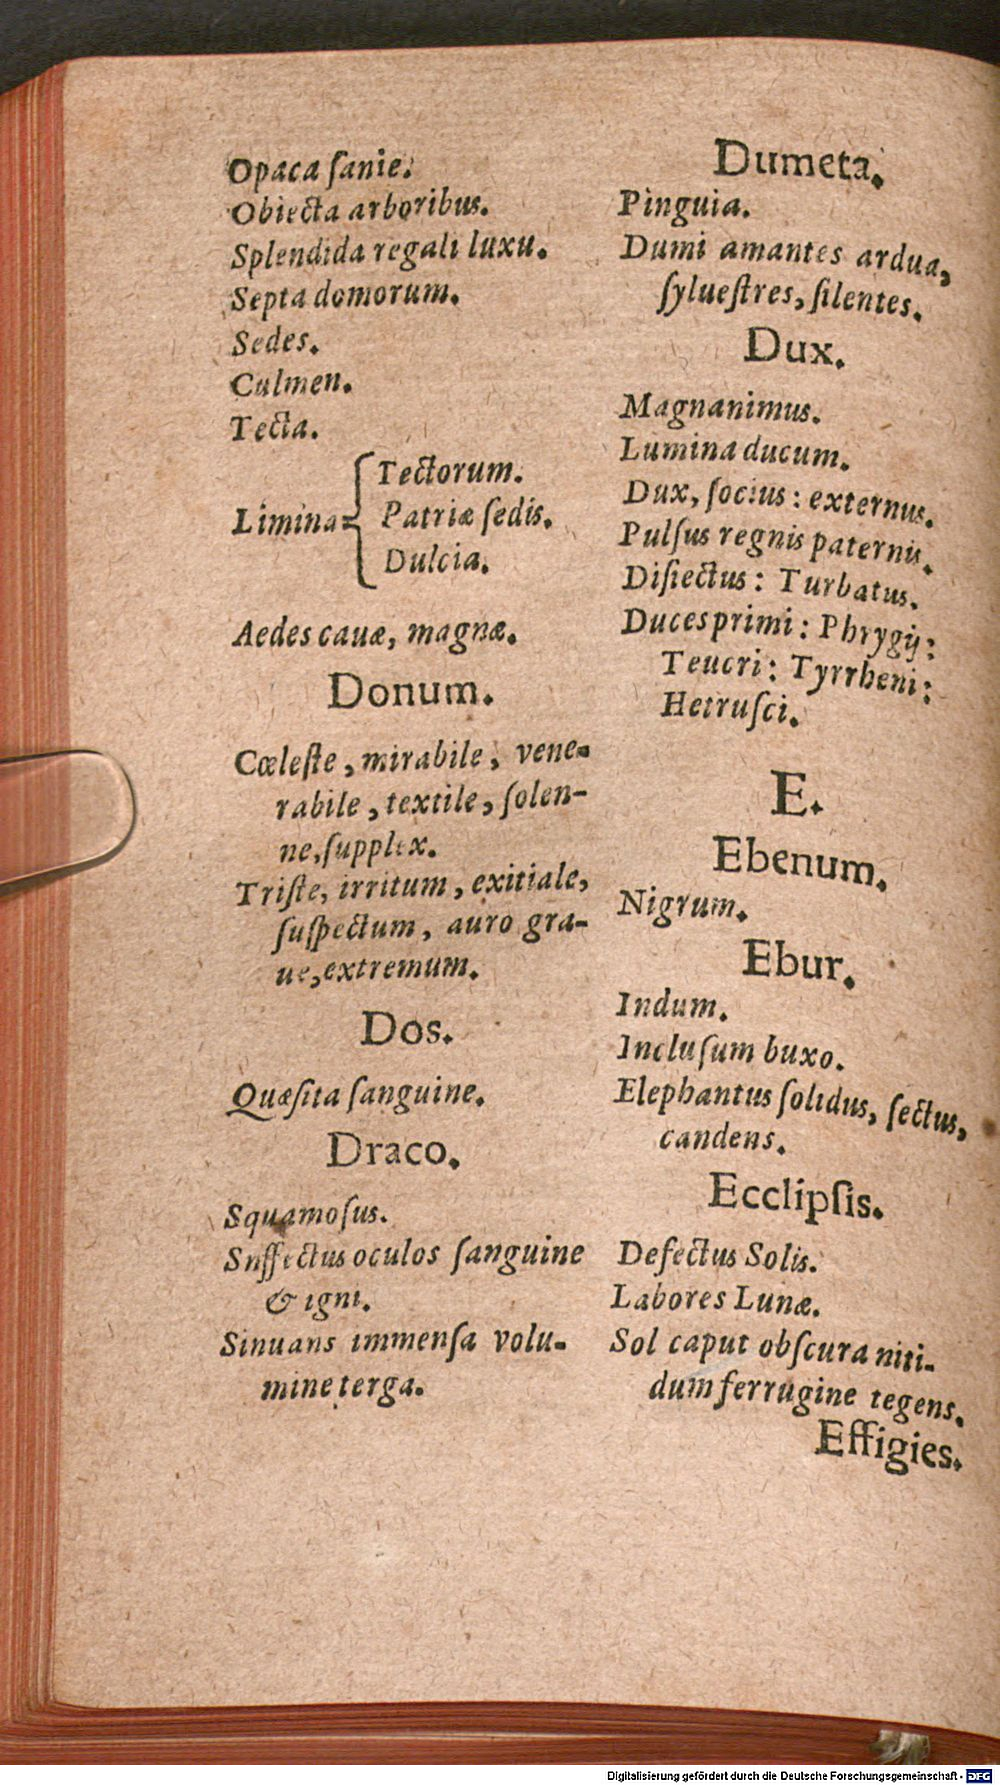 Opaca ſanie.
Obiecta arboribus.
Splendida regali luxu.
Septa domorum.
Sedes.
Culmen.
Tecta.
Limina
Tectorum.
Patriæ ſedis.
Dulcia.
Aedes cauæ, magnæ.
Donum.
Cœleſte, mirabile, vene-
rabile, textile, ſolen-
ne, ſupplex.
Triſte, irritum, exitiale,
ſuſpectum, auro gra-
ue, extremum.
Dos.
Quæſita ſanguine.
Draco.
Squamoſus.
Snffectus oculos ſanguine
& igni.
Sinuans immenſa volu-
mine terga.
Dumeta.
Pinguia.
Dumi amantes ardua,
ſylueſtres, ſilentes.
Dux.
Magnanimus.
Lumina ducum.
Dux, ſocius: externus.
Pulſus regnis paternis.
Diſiectus: Turbatus.
Duces primi: Phrygij:
Teucri: Tyrrheni:
Hetruſci.
E.
Ebenum.
Nigrum.
Ebur.
Indum.
Incluſum buxo.
Elephantus ſolidus, ſectus,
candens.
Ecclipſis.
Defectus Solis.
Labores Lunæ.
Sol caput obſcura niti-
dum ferrugine tegens.
Effigies.
Digitalisierung gefördert durch die Deutsche Forschungsgemeinschaft - DFG